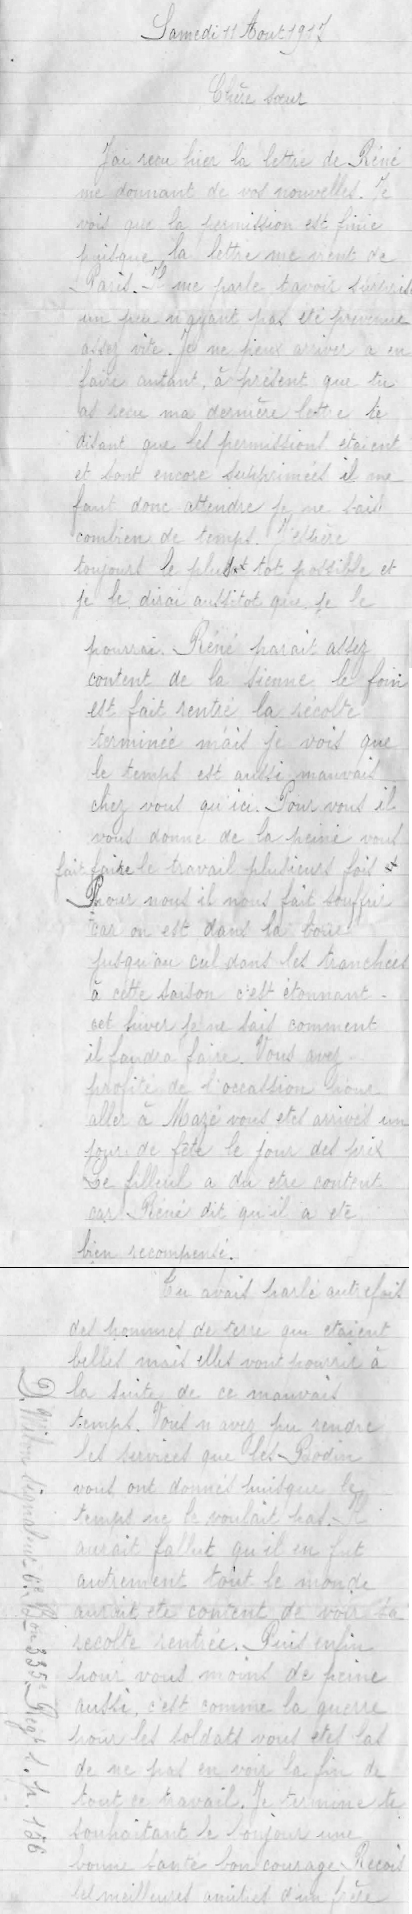 Samedi 11 Aout 1917
Chère sœur
J'ai reçu hier la lettre de Réné
me donnant de vos nouvelles. Je
vois que la permission est finie
puisque la lettre me vient de
Paris. Il me parle t'avoir surpris
un peu n'ayant pas eté prevenue
assez vite. Je ne peux arriver a en
faire autant, à présent que tu
as reçu ma dernière lettre te
disant que les permissions etaient
et sont encore supprimées il me
faut donc attendre je ne sais
combien de temps. J'espère
toujours le plus tot possible et
je le dirai aussitot que je le
pourrai. Réné parait assez
content de la sienne le foin
est fait rentré la récolte
terminée mais je vois que
le temps est aussi mauvais
chez vous qu'ici. Pour vous il
vous donne de la peine vous
fait faire le travail plusieurs fois
Pour nous il nous fait souffrir
car on est dans la boue
jusqu'au cul dans les tranchées
à cette saison c'est étonnant -
cet hiver je ne sais comment
il faudra faire. Vous avez
profité de l'occassion pour
aller à Mazé vous etes arrivés un
jour de fête le jour des prix
Le filleul a du etre content
car Réné dit qu'il a eté
bien recompensé.
Tu avais parlé autrefois
des pommes de terre qui etaient
belles mais elles vont pourrir à
la suite de ce mauvais
temps. Vous n'avez pu rendre
les services que les Bodin
vous ont donnés puisque le
temps ne le voulait pas. Il
aurait fallut qu'il en fut
autrement tout le monde
aurait eté content de voir sa
recolte rentrée. Puis enfin
pour vous moins de peine
aussi, c'est comme la guerre
pour les soldats vous etes las
de ne pas en voir la fin de
tout ce travail. Je termine te
souhaitant le bonjour une
bonne santé bon courage Reçois
les meilleures amitiés d'un frère
D. 335e Regt s. p. 186